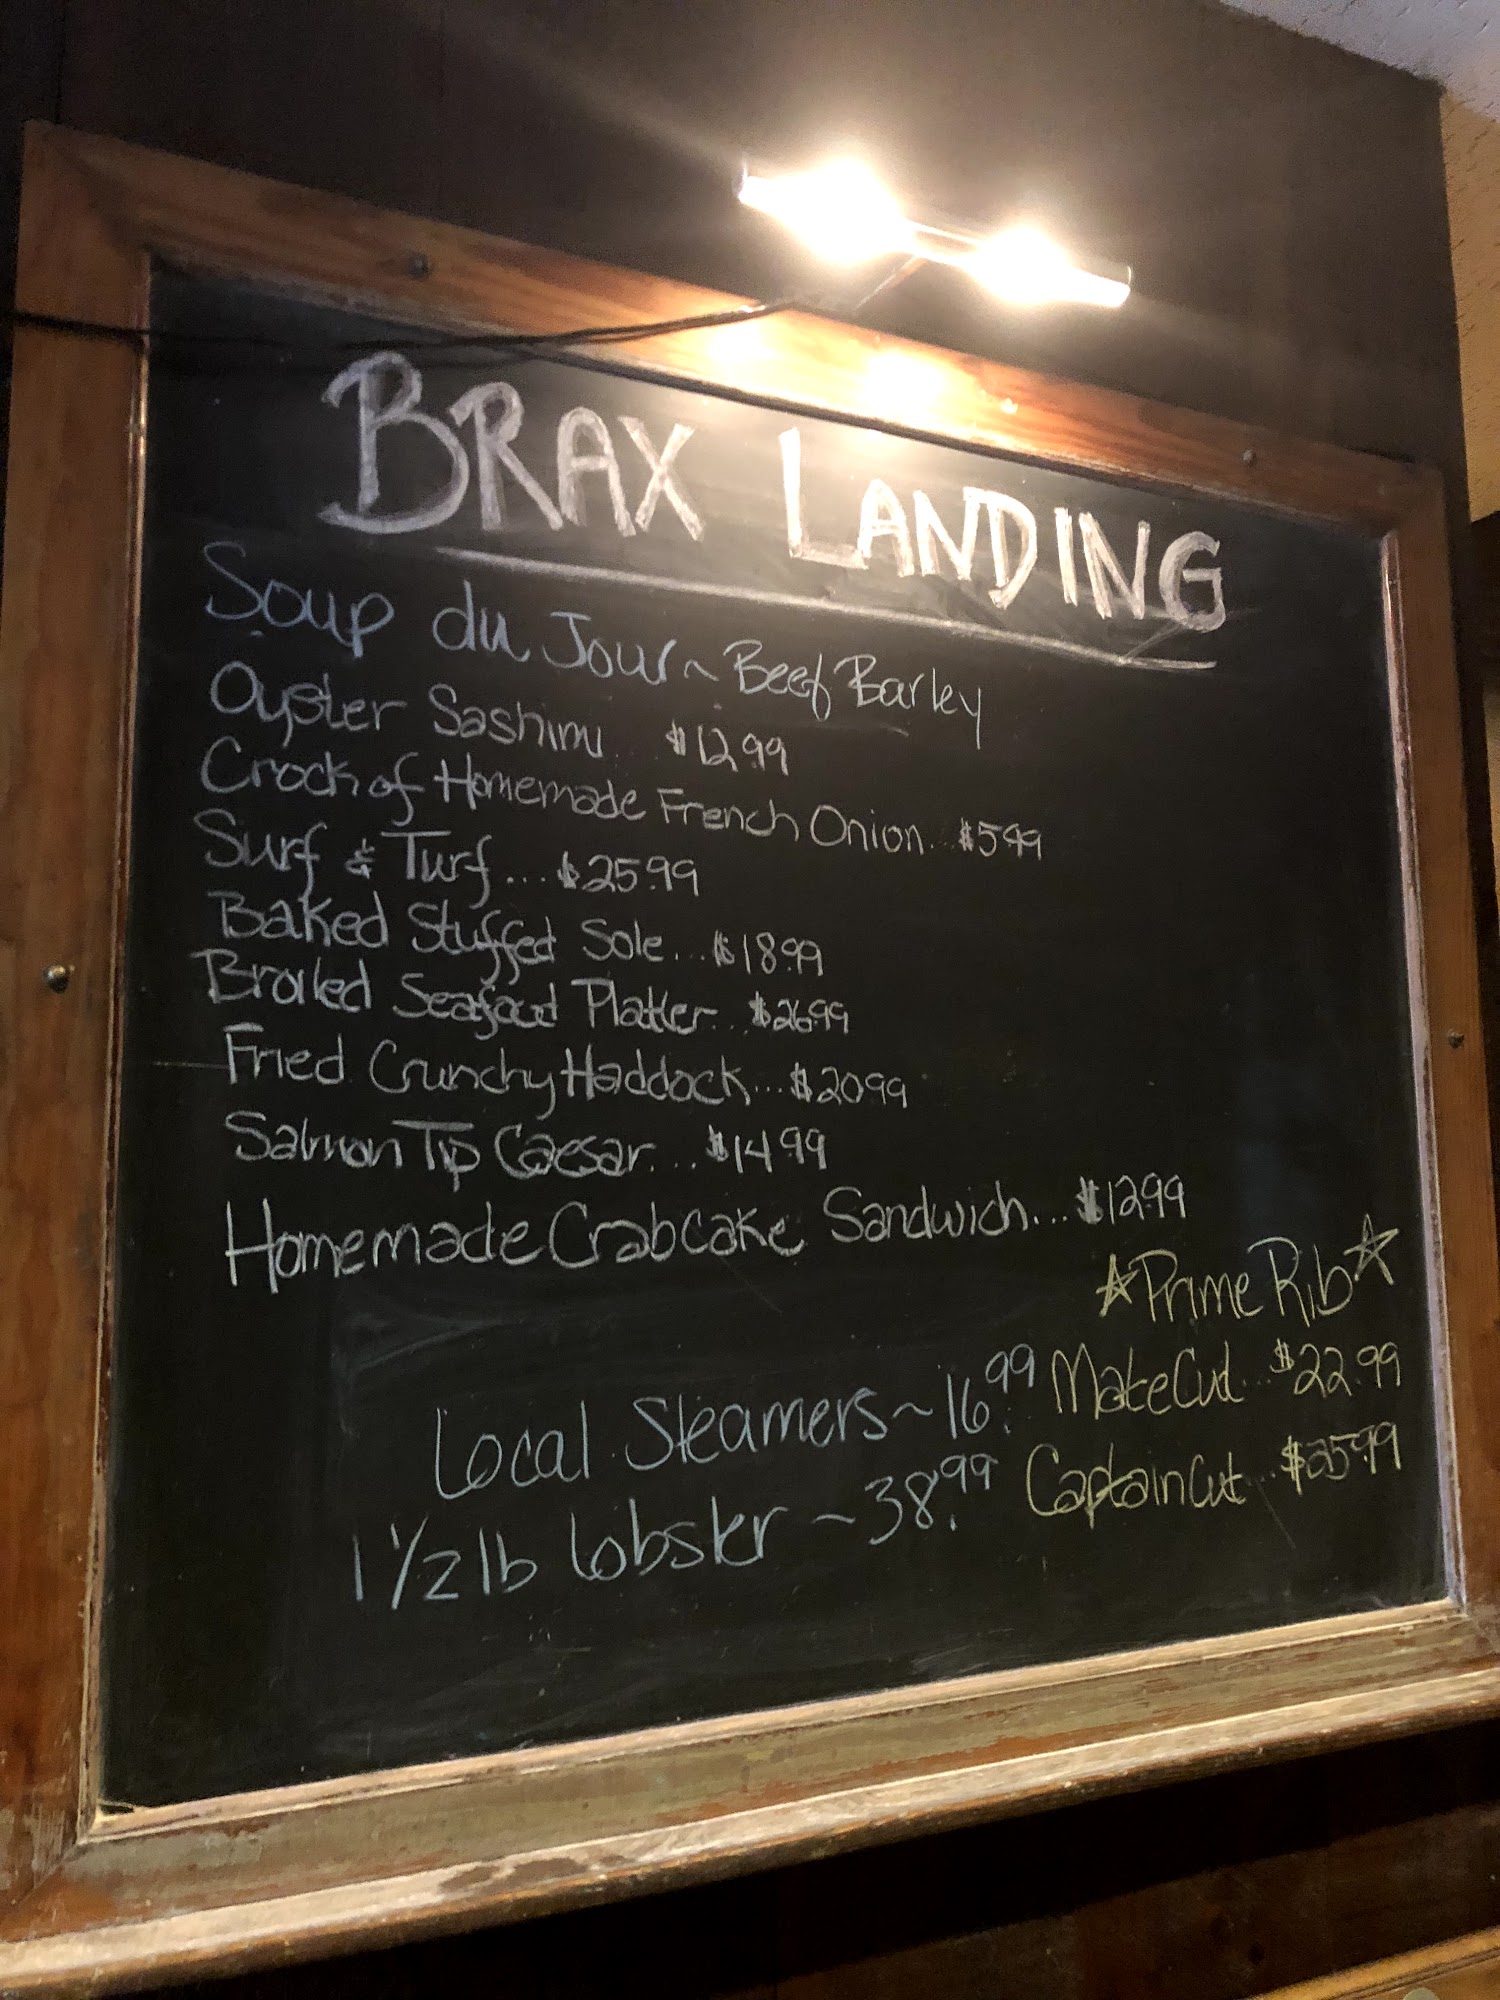 BRAX LANDING
Soup du Jour ~ Beef Barley
Oyster Sashimi... $12.99
Crock of Homemade French Onion... $5.99
Surf & Turf.... $25.99
Baked Stuffed Sole... $18.99
Broiled Seafood Platter... $26.99
Fried Crunchy Haddock... $20.99
Salmon Tip Caesar... $14.99
Homemade Crabcake Sandwich... $12.99
☆Prime Rib☆
Mate Cut... $22.99
Captain Cut... $25.99
Local Steamers ~ 16.99
1 1/2 lb lobster ~ 38.99